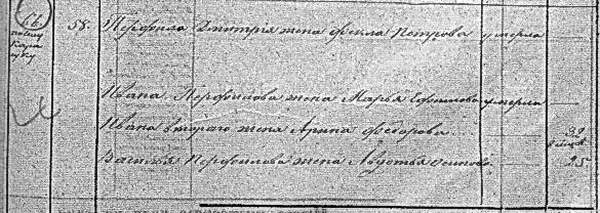 66.
58. Перфила Дмитрія жена Фекла Петрова умерла
Ивана Перфилова жена Марья Ефимова умерла
Ивана втораго жена Арина Федорова 32
Василья Перфилова жена Авдотья Осипова 25